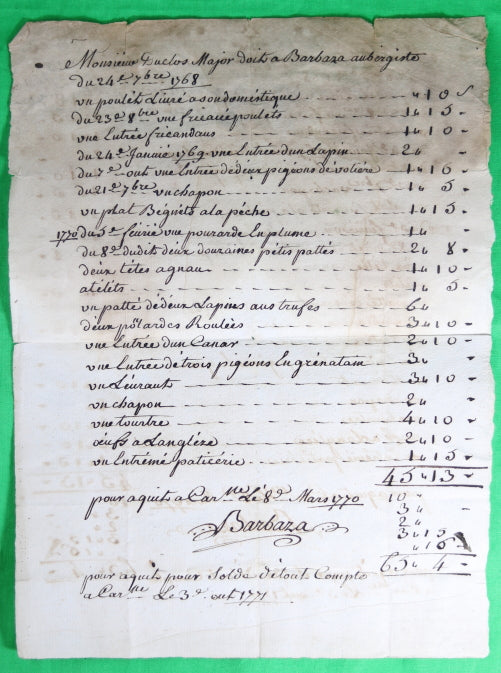 Monsieur Duclos Major doit a Barbaza aubergiste
du 24e 7bre 1768
un poulets Livré a son doméstique 10 s
du 23e 8bre une fricacée poulets 1 " 15 "
une Entrée fricandaus 1 " 10 "
du 24e Janvié 1769 une Entrée d'un Lapin 2 "
du 7e out une Entrée de deux pigéons de voliére 1 " 10 "
du 21e 7bre un chapon 1 " 5 "
un plat Béguéts a la péche 1 " 15 "
1770 du 5e féürié une pourarde En plume 1 "
du 8e dudit deux douzaines pétis pattés 2 " 8 "
deux tétes agnau 1 " 10 "
atéléts 1 " 5 "
un patté dé deux Lapins aus trufes 6 "
deux Roulées 3 " 10 "
une Entrée d'un Canar 2 " 10 "
une Entrée dé trois pigéons En grénatam 3 "
un Léuraut 3 " 10 "
un chapon 2 "
une tourtre 4 " 10 "
oeufs a Langléze 2 " 10 "
un Entrémé paticérie 1 " 15 "
45 " 13 "
pour aquit a Car.ne Le 8e Mars 1770 10 "
3 "
Barbaza 2 "
3 " 15
" 16
65 " 4 "
pour aquit pour Solde dé tout Compte
a Car.ne Le 3e out 1771